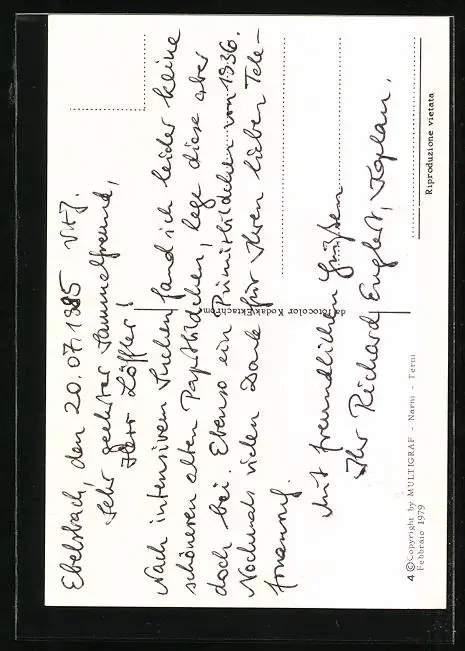 Ebelsbach, den 20.07.1985
Sehr geehrter Sammelfreund,
Herr Löffler!
Nach intensivem Suchen fand ich leider keine
schöneren alten Papstbildchen, lege diese aber
doch bei. Ebenso ein Primizbildchen von 1936.
Nochmals vielen Dank für Ihren lieben Tele-
fonanruf.
Mit freundlichen Grüßen
Ihr Richard Englert, Kaplan.
da fotocolor Kodak Ektachrom
Riproduzione vietata
4 ©Copyright by MULTIGRAF - Narni - Terni
Febbraio 1979